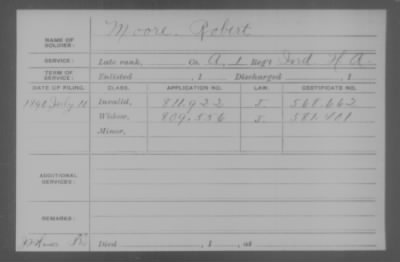 NAME OF SOLDIER: Moore, Robert
SERVICE: Late rank, Co. A, 1 Reg't Ind H A.
TERM OF SERVICE: Enlisted , 1 Discharged , 1
DATE OF FILING. CLASS. APPLICATION NO. LAW. CERTIFICATE NO.
1890 July 10 Invalid, 811.922 5. 568.662
Widow, 809.556 5. 581.401
Minor,
ADDITIONAL SERVICES:
REMARKS:
Died , 1 , at